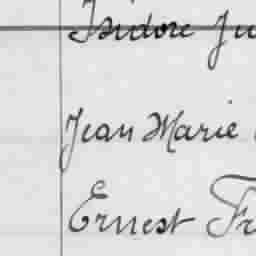 Isidore Ju
Jean Marie
Ernest Fr